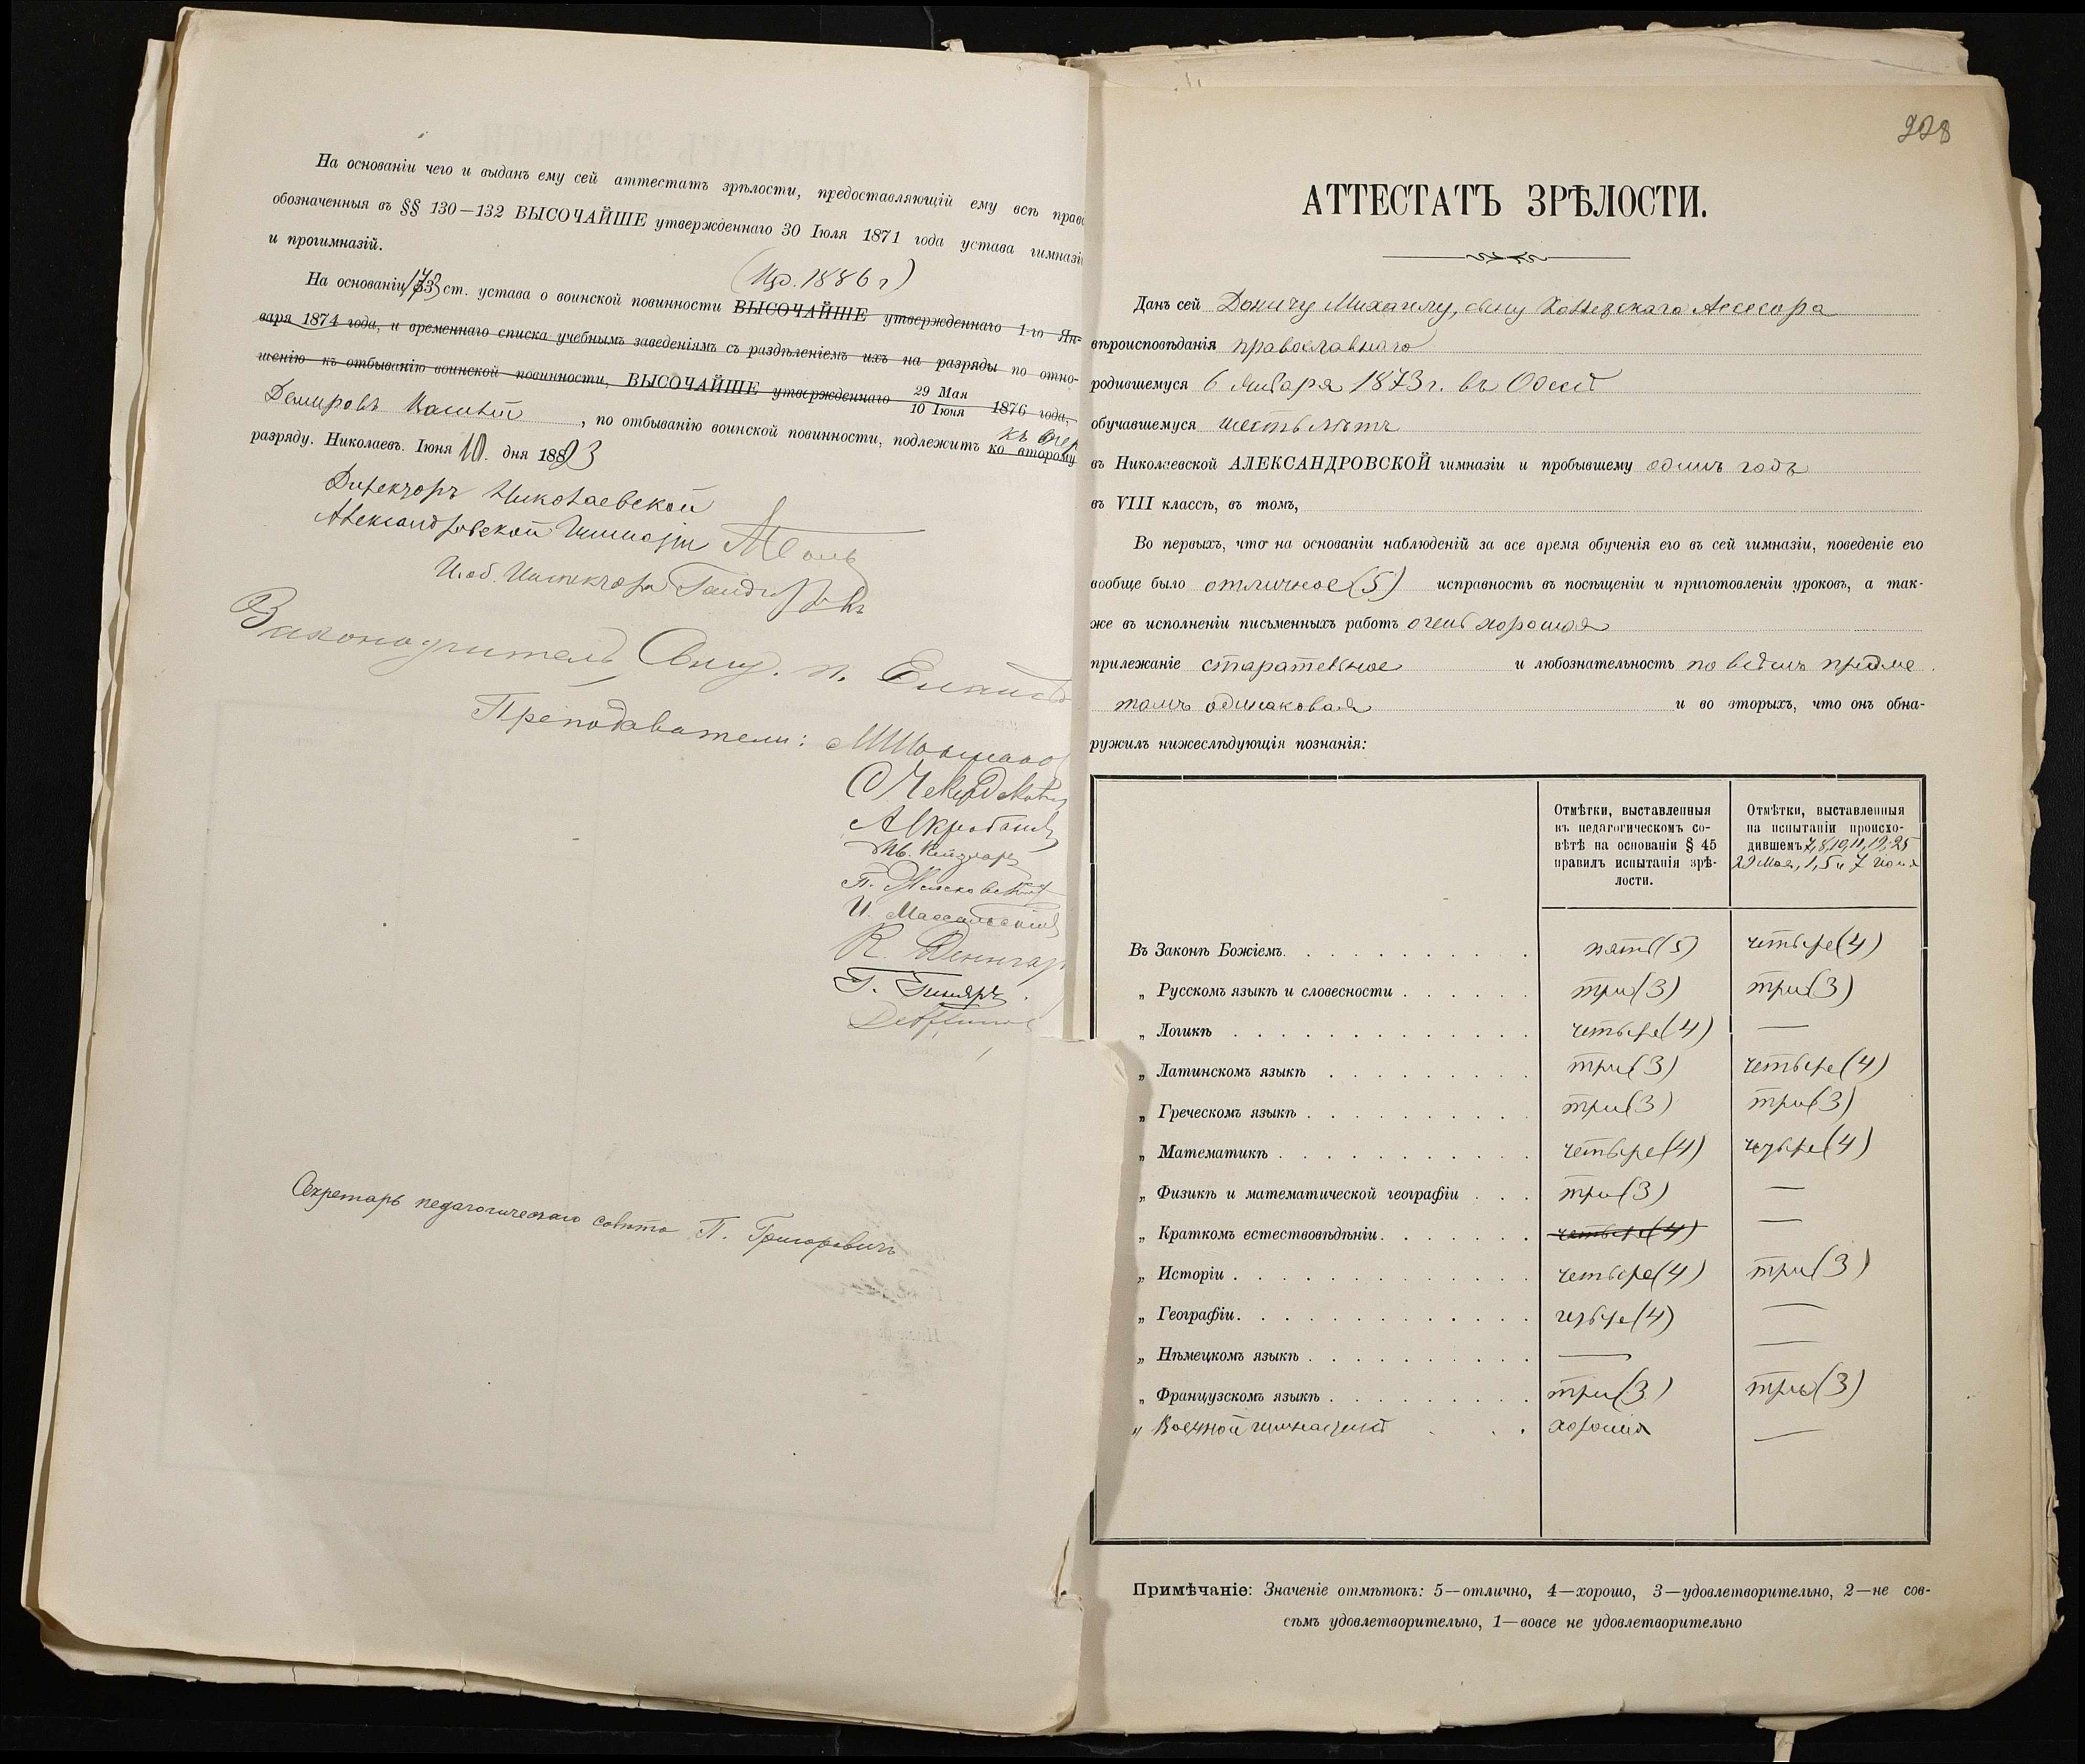 На основаніи чего и выданъ ему сей аттестатъ зрѣлости, предоставляющій ему всѣ права
обозначенныя въ §§ 130—132 ВЫСОЧАЙШЕ утвержденнаго 30 Іюля 1871 года устава гимназі
и прогимназій.
(Изд. 1886 г)
На основаніи ст. устава о воинской повинности ВЫСОЧАЙШЕ утвержденнаго 1-го Ян-
варя 1874 года, и временнаго списка учебнымъ заведеніямъ съ раздѣленіемъ ихъ на разряды по отно-
шенію къ отбыванію воинской повинности, ВЫСОЧАЙШЕ утвержденнаго 29 Мая 10 Іюня 1876 года,
Демировъ Василій, по отбыванію воинской повинности, подлежитъ ко второму
разряду. Николаевъ. Іюня 10. дня 1893
Директоръ Николаевской
Александровской Гимназіи
И. об. Инспектора
Законоучитель Свящ. п.
Преподаватели:
П.
И. Массальскій
К.
Г.
Секретарь педагогическаго совѣта П. Григоровичъ
228
АТТЕСТАТЪ ЗРѢЛОСТИ.
Данъ сей Доничу Михаилу, сыну Коллежскаго Асессора
вѣроисповѣданія православнаго
родившемуся 6 Января 1873 г. въ Одессѣ
обучавшемуся шесть лѣтъ
въ Николаевской АЛЕКСАНДРОВСКОЙ гимназіи и пробывшему одинъ годъ
въ VIII классѣ, въ томъ,
Во первыхъ, что на основаніи наблюденій за все время обученія его въ сей гимназіи, поведеніе его
вообще было отличное (5) исправность въ посѣщеніи и приготовленіи уроковъ, а так-
же въ исполненіи письменныхъ работъ очень хорошая
прилежаніе старательное и любознательность по всѣмъ предме
тамъ одинаковая и во вторыхъ, что онъ обна-
ружилъ нижеслѣдующія познанія:
Отмѣтки, выставленныя
въ педагогическомъ со-
вѣтѣ на основаніи § 45
правилъ испытанія зрѣ-
лости.
Отмѣтки, выставленныя
на испытаніи происхо-
дившемъ 7, 8, 10, 11, 19, 25
29 Мая, 1, 5 и 7 Іюня
Въ Законѣ Божіемъ. пять (5) четыре (4)
„ Русскомъ языкѣ и словесности три (3) три (3)
„ Логикѣ четыре (4) —
„ Латинскомъ языкѣ три (3) четыре (4)
„ Греческомъ языкѣ три (3) три (3)
„ Математикѣ четыре (4) четыре (4)
„ Физикѣ и математической географіи три (3) —
„ Краткомъ естествовѣдѣніи. четыре (4) —
„ Исторіи четыре (4) три (3)
„ Географіи. четыре (4) —
„ Нѣмецкомъ языкѣ — —
„ Французскомъ языкѣ три (3) три (3)
„ Военной гимнастикѣ хорошія —
Примѣчаніе: Значеніе отмѣтокъ: 5—отлично, 4—хорошо, 3—удовлетворительно, 2—не сов-
сѣмъ удовлетворительно, 1—вовсе не удовлетворительно